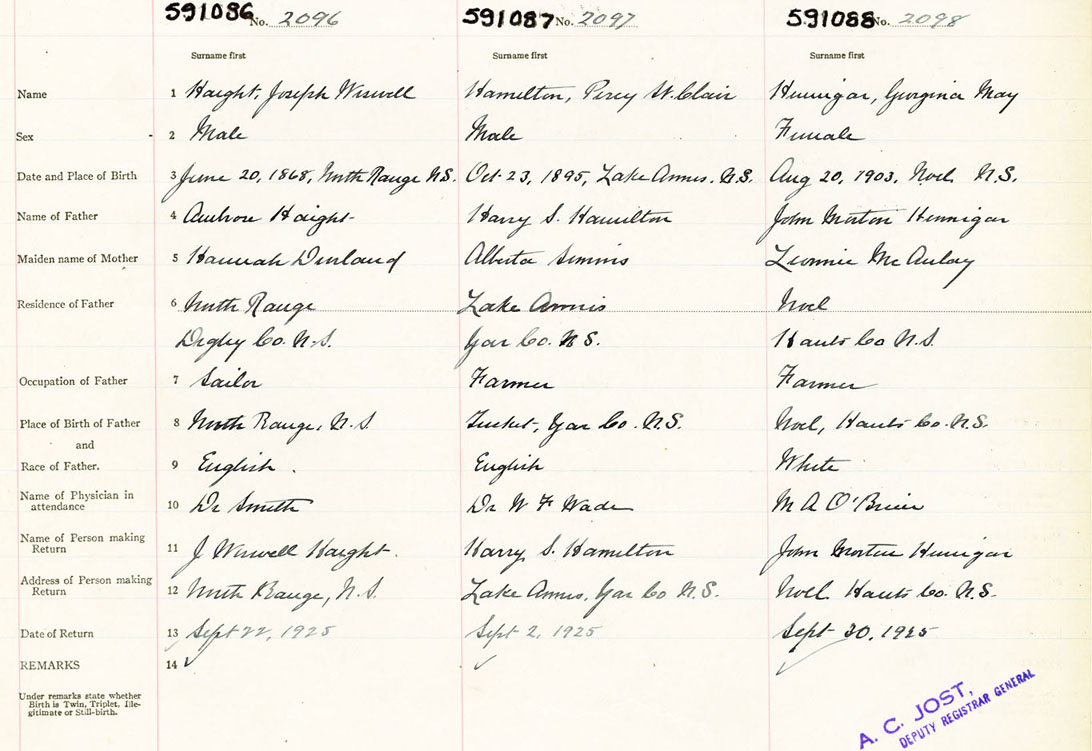 591086 No. 2096 591087 No. 2097 591088 No. 2098
Surname first Surname first Surname first
Name 1 Haight, Joseph Wiswell Hamilton, Percy St. Clair Hennigar, Georgina May
Sex 2 Male Male Female
Date and Place of Birth 3 June 20, 1868, North Range N.S. Oct. 23, 1895, Lake Annis. N.S. Aug 20, 1903, Noel N.S.
Name of Father 4 Ambrose Haight Harry S. Hamilton John Morton Hennigar
Maiden name of Mother 5 Hannah Durland Alberta Simms McAulay
Residence of Father 6 North Range Lake Annis Noel
Digby Co. N.S. Yar Co. N.S. Hants Co N.S.
Occupation of Father 7 Sailor Farmer Farmer
Place of Birth of Father 8 North Range, N.S. Tusket, Yar Co. N.S. Noel, Hants Co. N.S.
and
Race of Father. 9 English. English White
Name of Physician in
attendance 10 Dr Smith Dr W F Wade M A O'Brien
Name of Person making
Return 11 J Wiswell Haight. Harry S. Hamilton John Morton Hennigar
Address of Person making
Return 12 North Range, N.S. Lake Annis, Yar Co N.S. Noel Hants Co. N.S.
Date of Return 13 Sept 22, 1925 Sept 2, 1925 Sept 30, 1925
REMARKS 14
Under remarks state whether
Birth is Twin, Triplet, Ille-
gitimate or Still-birth.
A. C. JOST,
DEPUTY REGISTRAR GENERAL